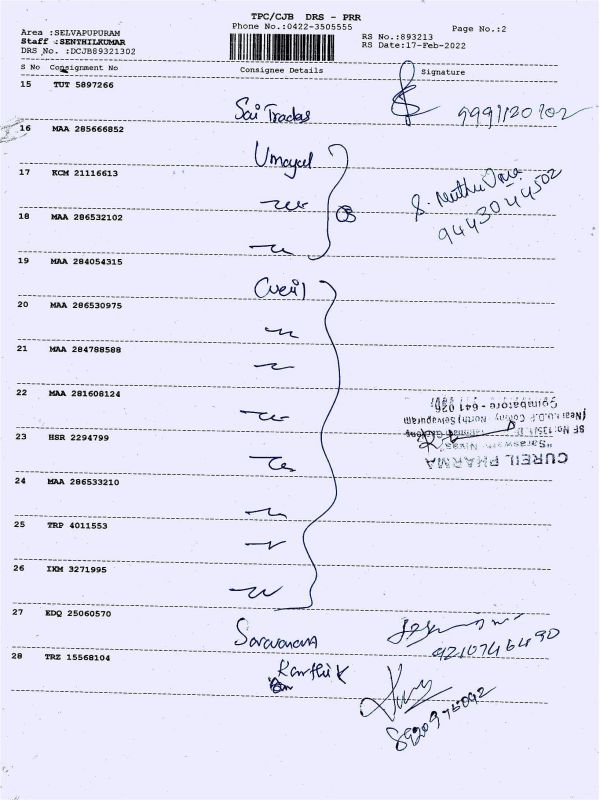 TPC/CJB DRS - PRR
Area :SELVAPUPURAM
Phone No.:0422-3505555
Page No.:2
Staff :SENTHILKUMAR
RS No.:893213
DRS No. :DCJB89321302
RS Date:17-Feb-2022
S No Consignment No Consignee Details Signature
15 TUT 5897266
Sai Traders 9991120102
16 MAA 285666852
Umayal
17 KCM 21116613
S. Muthu Uma
9443044502
18 MAA 286532102
19 MAA 284054315
Cureil
20 MAA 286530975
21 MAA 284788588
22 MAA 281608124
23 HSR 2294799
CUREIL PHARMA
"Saraswathi Nivas"
SF No: 135/1 D
(Near L.U.D.F Colony North) Selvapuram
Coimbatore - 641 026
24 MAA 286533210
25 TRP 4011553
26 IKM 3271995
27 EDQ 25060570
Saravanana
9210746490
28 TRZ 15568104
Karthik
8920975092